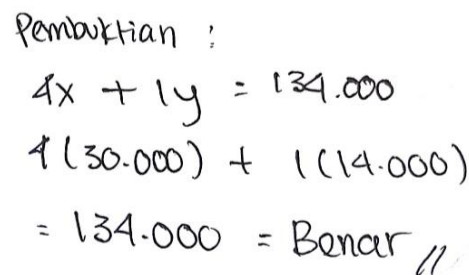 Pembuktian :
4x + 1y = 134.000
4 (30.000) + 1(14.000)
= 134.000 = Benar //